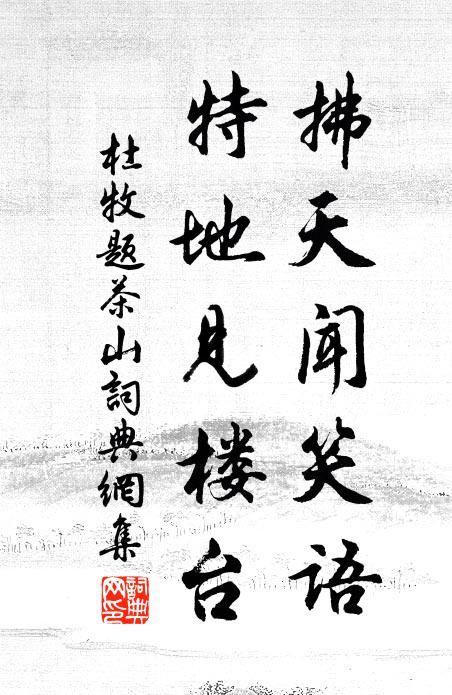 拂天闻笑语
特地见楼台
杜牧题茶山詞典網集
詞典网印